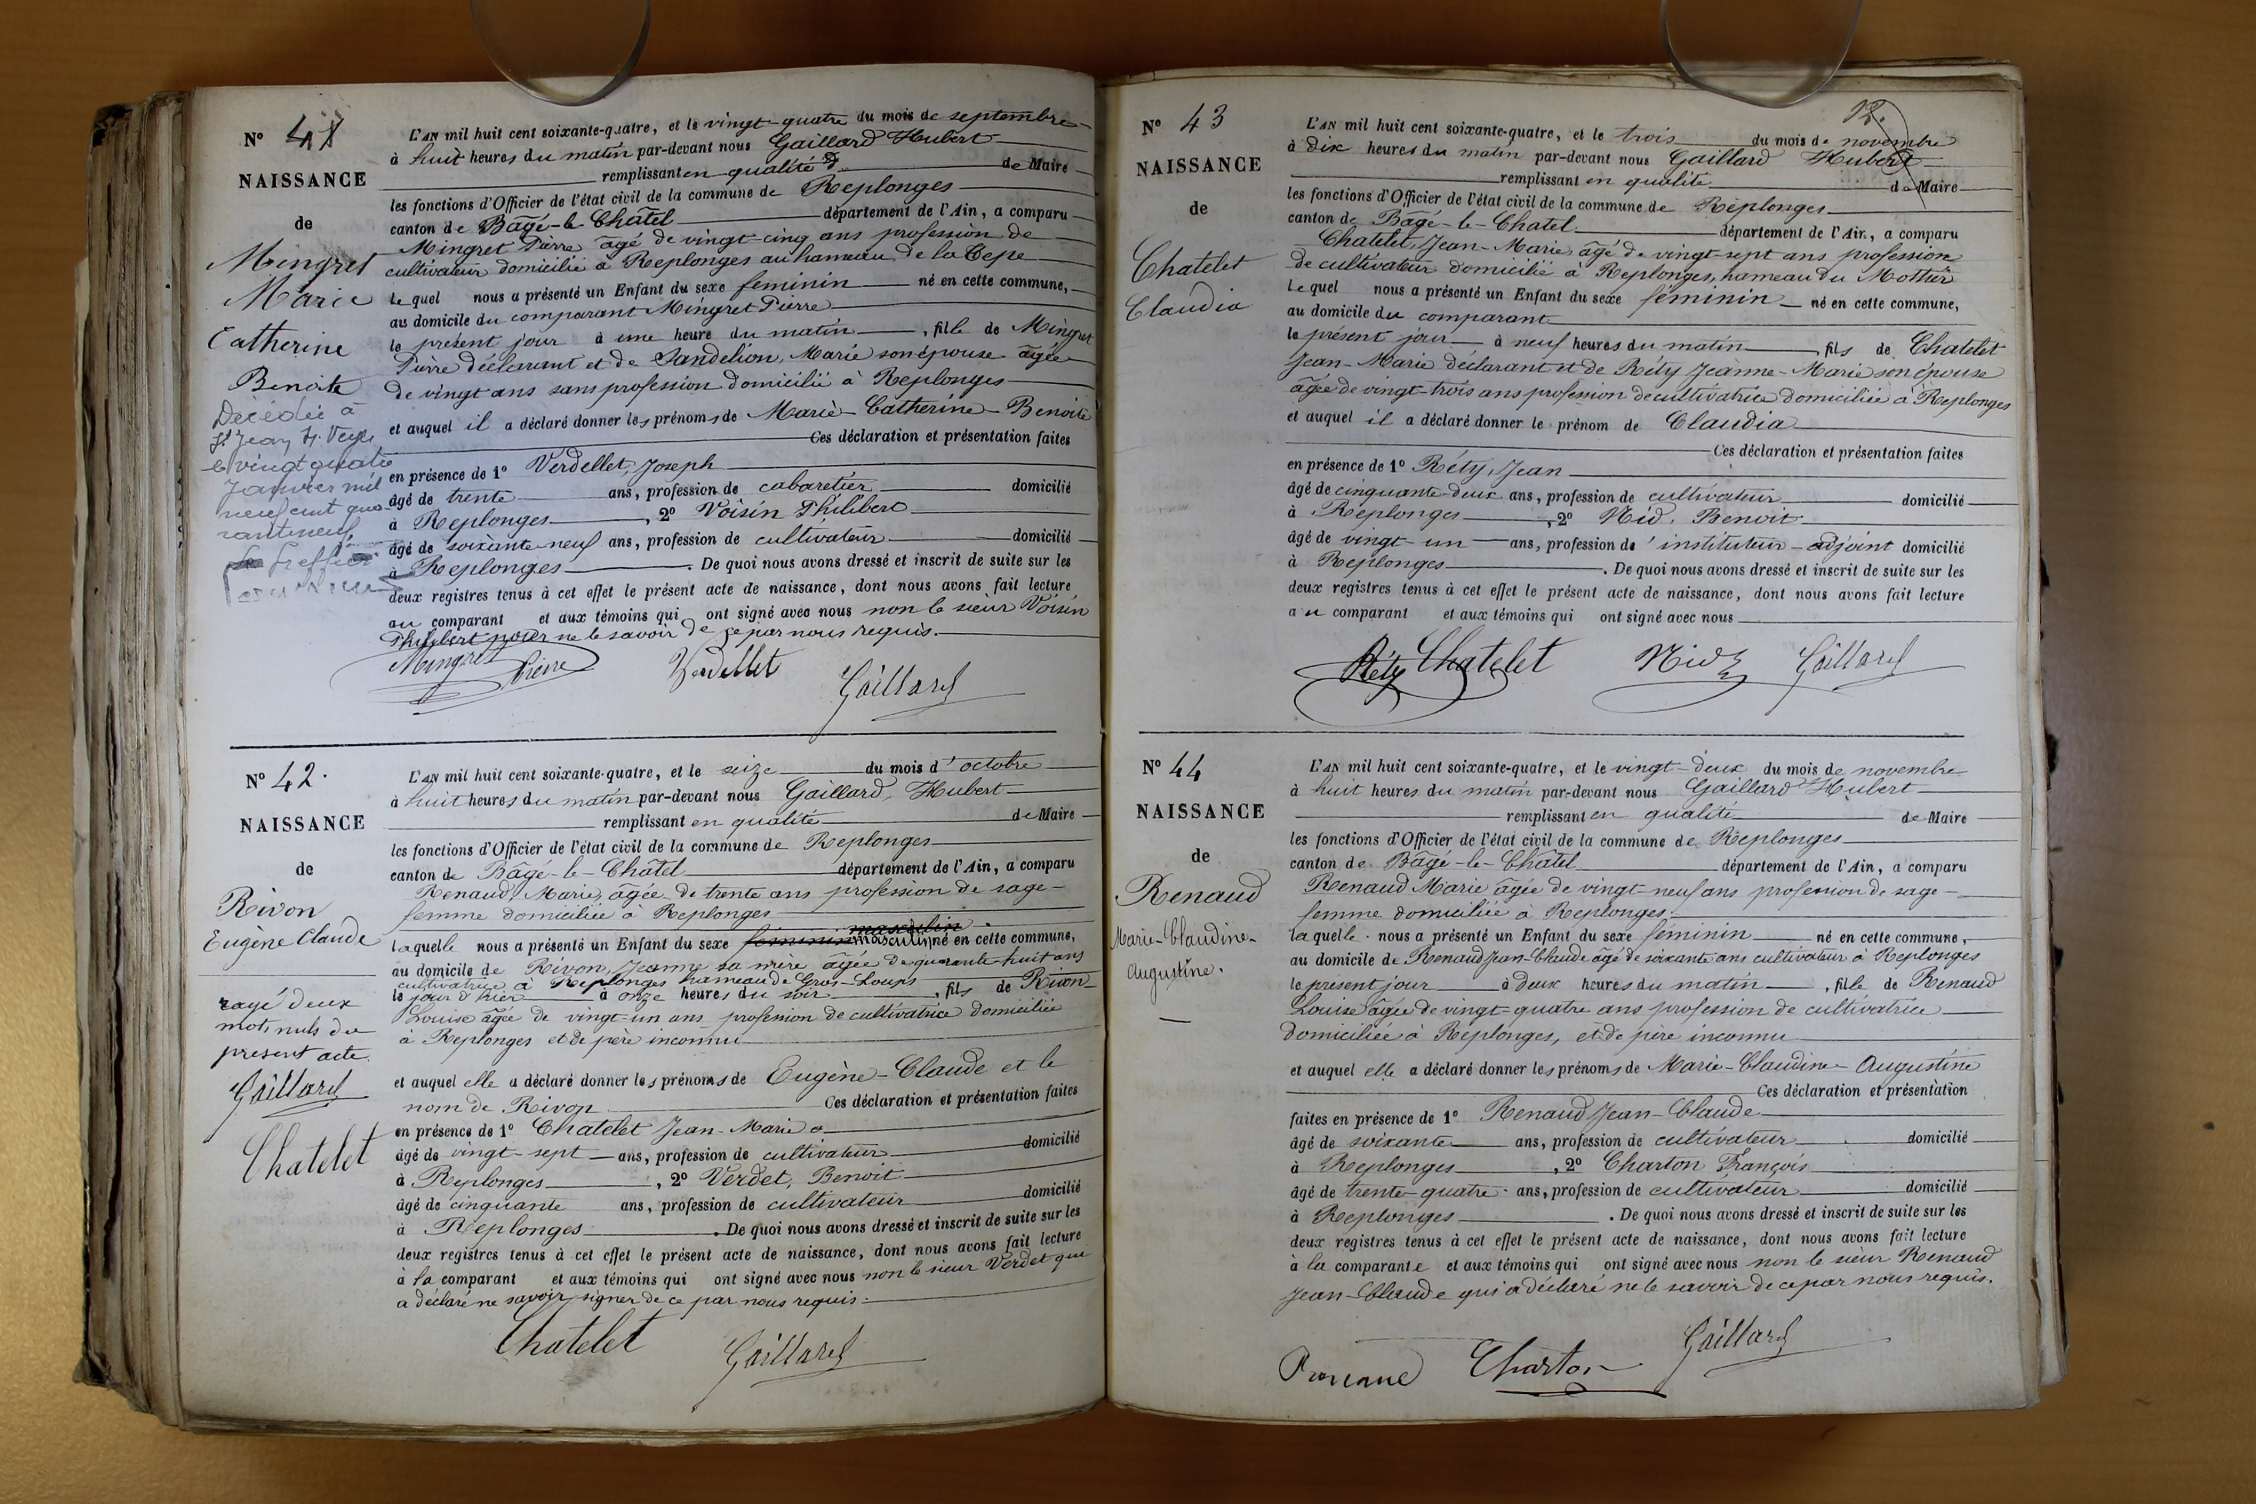 N° 41
NAISSANCE
de
Mingret
Marie
Catherine
Benoite
Décédée à
St Jean s. Veyle
le vingt quatre
Janvier mil
neuf cent qua
rante neuf
Le Greffier
L'AN mil huit cent soixante-quatre, et le vingt-quatre du mois de septembre
à huit heures du matin par-devant nous Gaillard Hubert
remplissant en qualité de Maire
les fonctions d'Officier de l'état civil de la commune de Replonges
canton de Bâgé-le-Châtel département de l'Ain, a comparu
Mingret Pierre âgé de vingt-cinq ans profession de
cultivateur domicilié à Replonges au hameau de la Cepe
lequel nous a présenté un Enfant du sexe féminin né en cette commune,
au domicile du comparant Mingret Pierre
le présent jour à une heure du matin, fille de Mingret
Pierre déclarant et de Sandelion, Marie son épouse âgée
de vingt ans sans profession domicilié à Replonges
et auquel il a déclaré donner les prénoms de Marie-Catherine-Benoite
Ces déclaration et présentation faites
en présence de 1° Verdellet, Joseph
âgé de trente ans, profession de cabaretier domicilié
à Replonges, 2° Voisin Philibert
âgé de soixante-neuf ans, profession de cultivateur domicilié
à Replonges. De quoi nous avons dressé et inscrit de suite sur les
deux registres tenus à cet effet le présent acte de naissance, dont nous avons fait lecture
au comparant et aux témoins qui ont signé avec nous non le sieur Voisin
Philibert pour ne le savoir de ce par nous requis.
Mingret Pierre Verdellet Gaillard
N° 42.
NAISSANCE
de
Rivon
Eugène Claude
rayé deux
mots nuls du
présent acte.
Gaillard
Chatelet
L'AN mil huit cent soixante-quatre, et le seize du mois d'octobre
à huit heures du matin par-devant nous Gaillard, Hubert
remplissant en qualité de Maire
les fonctions d'Officier de l'état civil de la commune de Replonges
canton de Bâgé-le-Châtel département de l'Ain, a comparu
Renaud, Marie, âgée de trente ans profession de sage-
femme domiciliée à Replonges
masculin
laquelle nous a présenté un Enfant du sexe féminin masculin né en cette commune,
au domicile de Rivon, Jeanne sa mère âgée de quarante-huit ans
cultivatrice à Replonges hameau de Gros-Loups
le jour d'hier à onze heures du soir, fils de Rivon
Louise âgée de vingt-un ans profession de cultivatrice domiciliée
à Replonges et de père inconnu
et auquel elle a déclaré donner les prénoms de Eugène-Claude et le
nom de Rivon Ces déclaration et présentation faites
en présence de 1° Chatelet Jean-Marie
âgé de vingt-sept ans, profession de cultivateur domicilié
à Replonges, 2° Verdet, Benoit
âgé de cinquante ans, profession de cultivateur domicilié
à Replonges. De quoi nous avons dressé et inscrit de suite sur les
deux registres tenus à cet effet le présent acte de naissance, dont nous avons fait lecture
à la comparant et aux témoins qui ont signé avec nous non le sieur Verdet qui
a déclaré ne savoir signer de ce par nous requis.
Chatelet Gaillard
12.
N° 43
NAISSANCE
de
Chatelet
Claudia
L'AN mil huit cent soixante-quatre, et le trois du mois de novembre
à dix heures du matin par-devant nous Gaillard Hubert
remplissant en qualité de Maire
les fonctions d'Officier de l'état civil de la commune de Replonges
canton de Bâgé-le-Chatel département de l'Ain, a comparu
Chatelet, Jean-Marie âgé de vingt-sept ans profession
de cultivateur domicilié à Replonges, hameau du Mottier
lequel nous a présenté un Enfant du sexe féminin né en cette commune,
au domicile du comparant
le présent jour à neuf heures du matin, fils de Chatelet
Jean-Marie déclarant et de Réty Jeanne-Marie son épouse
âgée de vingt-trois ans profession de cultivatrice domiciliée à Replonges
et auquel il a déclaré donner le prénom de Claudia
Ces déclaration et présentation faites
en présence de 1° Réty, Jean
âgé de cinquante-deux ans, profession de cultivateur domicilié
à Replonges, 2° Nid, Benoit
âgé de vingt-un ans, profession d'instituteur-adjoint domicilié
à Replonges. De quoi nous avons dressé et inscrit de suite sur les
deux registres tenus à cet effet le présent acte de naissance, dont nous avons fait lecture
au comparant et aux témoins qui ont signé avec nous
Réty Chatelet Nid Gaillard
N° 44
NAISSANCE
de
Renaud
Marie-Claudine-
Augustine.
L'AN mil huit cent soixante-quatre, et le vingt-deux du mois de novembre
à huit heures du matin par-devant nous Gaillard Hubert
remplissant en qualité de Maire
les fonctions d'Officier de l'état civil de la commune de Replonges
canton de Bâgé-le-Châtel département de l'Ain, a comparu
Renaud Marie âgée de vingt-neuf ans profession de sage-
femme domiciliée à Replonges.
laquelle nous a présenté un Enfant du sexe féminin né en cette commune,
au domicile de Renaud Jean-Claude âgé de soixante ans cultivateur à Replonges
le présent jour à deux heures du matin, fille de Renaud
Louise âgée de vingt-quatre ans profession de cultivatrice
domiciliée à Replonges, et de père inconnu
et auquel elle a déclaré donner les prénoms de Marie-Claudine-Augustine
Ces déclaration et présentation
faites en présence de 1° Renaud Jean-Claude
âgé de soixante ans, profession de cultivateur domicilié
à Replonges, 2° Charton François
âgé de trente-quatre ans, profession de cultivateur domicilié
à Replonges. De quoi nous avons dressé et inscrit de suite sur les
deux registres tenus à cet effet le présent acte de naissance, dont nous avons fait lecture
à la comparante et aux témoins qui ont signé avec nous non le sieur Renaud
Jean-Claude qui a déclaré ne le savoir de ce par nous requis.
Charton Gaillard